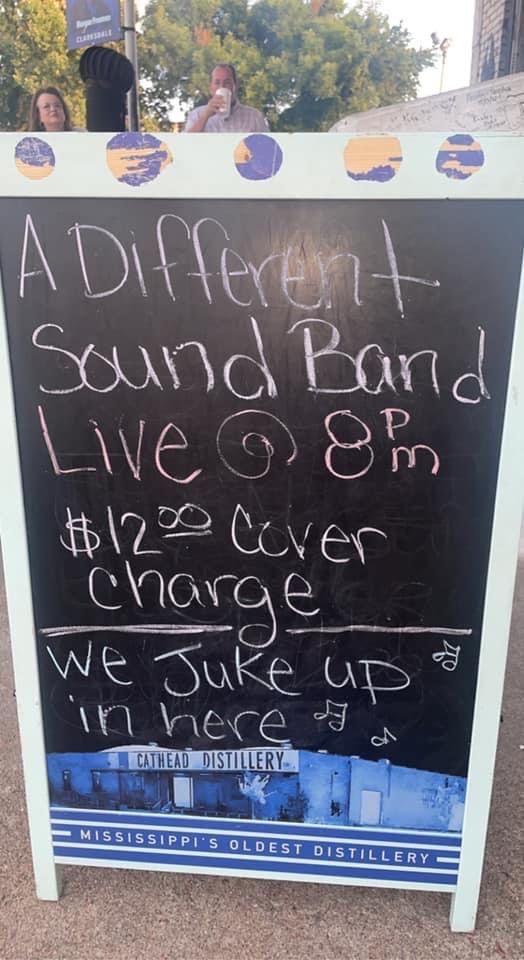 CLARKSDALE
A Different
Sound Band
Live @ 8pm
$12⁰⁰ Cover
charge
We Juke up
in here
CATHEAD DISTILLERY
MISSISSIPPI'S OLDEST DISTILLERY